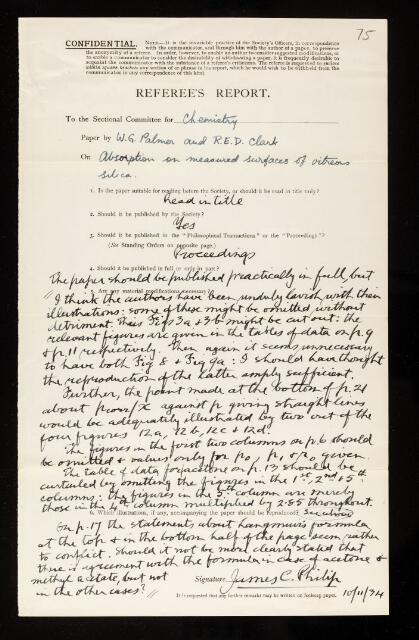 75
CONFIDENTIAL. NOTE.—It is the invariable practice of the Society's Officers, in correspondence
with the communicator, and through him with the author of a paper, to preserve
the anonymity of a referee. In order, however, to enable an author to consider suggested modifications, or
to enable a communicator to consider the desirability of withdrawing a paper, it is frequently desirable to
acquaint the communicator with the substance of a referee's criticisms. The referee is requested to enclose
within square brackets any section of or phrase in his report, which he would wish to be withheld from the
communicator in any correspondence of this kind.
REFEREE'S REPORT.
To the Sectional Committee for Chemistry
Paper by W.G. Palmer and R.E.D. Clark
On Absorption on measured surfaces of vitreous
silica.
1. Is the paper suitable for reading before the Society, or should it be read in title only?
Read in title
2. Should it be published by the Society?
Yes
3. Should it be published in the "Philosophical Transactions" or the "Proceedings"?
(See Standing Orders on opposite page.)
Proceedings
4. Should it be published in full or only in part?
The paper should be published practically in full, but
5. Are any material modifications necessary?
"I think the authors have been unduly lavish with their
illustrations: some of these might be omitted without
detriment. Thus Figs 3a & 3b might be cut out: the
relevant figures are given in the tables of data on p. 9
& p. 11 respectively. Then again it seems unnecessary
to have both Fig 8 & Fig 9a: I should have thought
the reproduction of the latter amply sufficient.
Further, the point made at the bottom of p. 21
about against p giving straight lines
would be adequately illustrated by two out of the
four figures 12a, 12b, 12c & 12d.
The figures in the first two columns on p. 6 should
be omitted & values only for given.
The table of data for acetone on p. 13 should be
curtailed by omitting the figures in the 1st, 2nd & 5th
columns: the figures in the 5th column are merely
those in the 4th column multiplied by 2.85 throughout.
6. Which illustrations, if any, accompanying the paper should be reproduced?
On p. 17 the statements about Langmuir's formula
at the top & in the bottom half of the page seem rather
to conflict. Should it not be more clearly stated that
there is agreement with the formula in case of acetone &
methyl acetate, but not
in the other cases?"
Signature James C. Philip
It is requested that any further remarks may be written on foolscap paper. 10/11/34